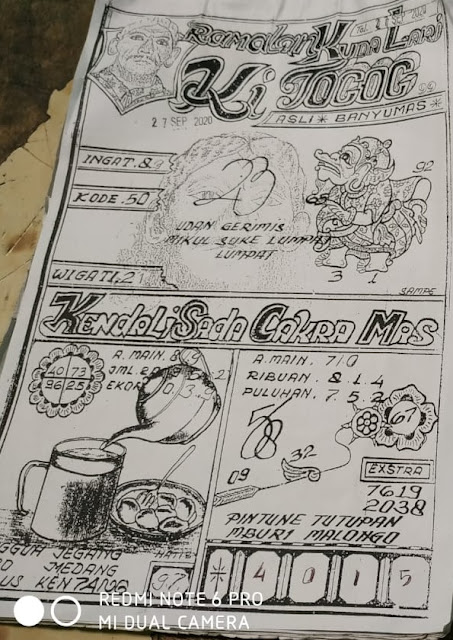 Ramalan Kuda Lari
Tgl. 27 SEP 2020
Ki TOGOG
ASLI * BANYUMAS *
27 SEP 2020
INGAT. 89
KODE. 50
23
65
92
UDAN GERIMIS
MIKUL SUKE LUMPAT
LUMPAT
WIGATI. 21
3 1
SAMPE
KENDALI SADA CAKRA MAS
A. MAIN. 8/9
JML. 2
EKOR
40 73
96 25
A. MAIN. 7/0
RIBUAN. 8.1.4
PULUHAN. 7.5.2
58
67
32
09
EXSTRA
7619
2038
PINTUNE TUTUPAN
MBURI MALONGO
JEGANG
MEDANG
US KENTANG
HATI2
97
* 4 0 1 5
REDMI NOTE 6 PRO
MI DUAL CAMERA